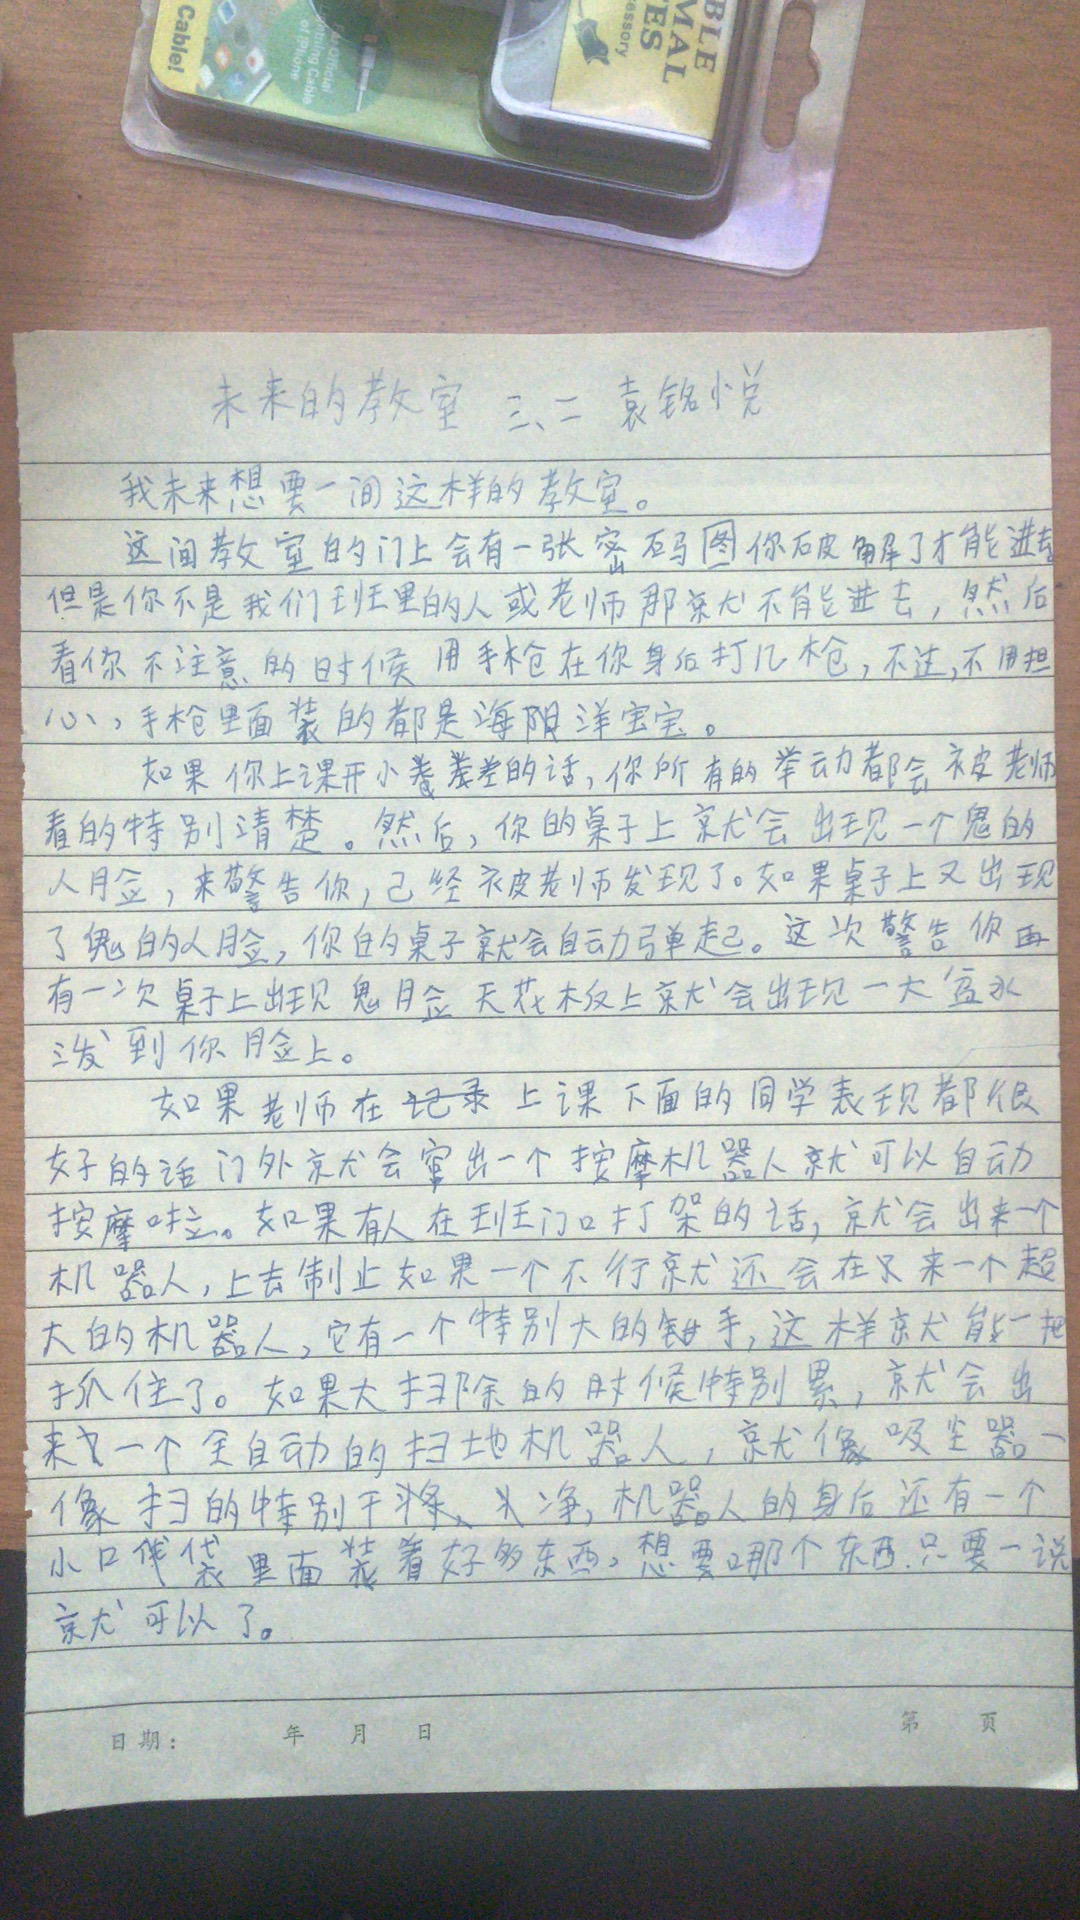 Cable!
Lightning Cable
of iPhone
BLE
MAL
TES
cessory
未来的教室 三、二 袁铭悦
我未来想要一间这样的教室。
这间教室的门上会有一张密码图你破解了才能进去
但是你不是我们班里的人或老师那就不能进去，然后
看你不注意的时候用手枪在你身后打几枪，不过，不用担
心，手枪里面装的都是海阳洋宝宝。
如果你上课开小差的话，你所有的举动都会被老师
看的特别清楚。然后，你的桌子上就会出现一个鬼的
人脸，来警告你，已经被老师发现了。如果桌子上又出现
了鬼的人脸，你的桌子就会自动弹起。这次警告你再
有一次桌子上出现鬼脸天花板上就会出现一大盆水
泼到你脸上。
如果老师在记录上课下面的同学表现都很
好的话门外就会窜出一个按摩机器人就可以自动
按摩啦。如果有人在班门口打架的话，就会出来一个
机器人，上去制止如果一个不行就还会在只来一个超
大的机器人，它有一个特别大的钳手，这样就能一把
抓住了。如果大扫除的时候特别累，就会出
来一个全自动的扫地机器人，就像吸尘器一
像扫的特别干净，机器人的身后还有一个
小口袋里面装着好多东西，想要哪个东西只要一说
就可以了。
日期： 年 月 日 第 页